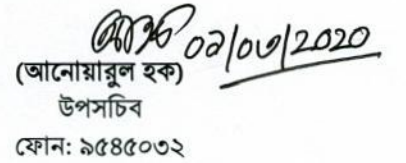 ০৯/০৩/2020
(আনোয়ারুল হক)
উপসচিব
ফোন: ৯৫৪৫০৩২